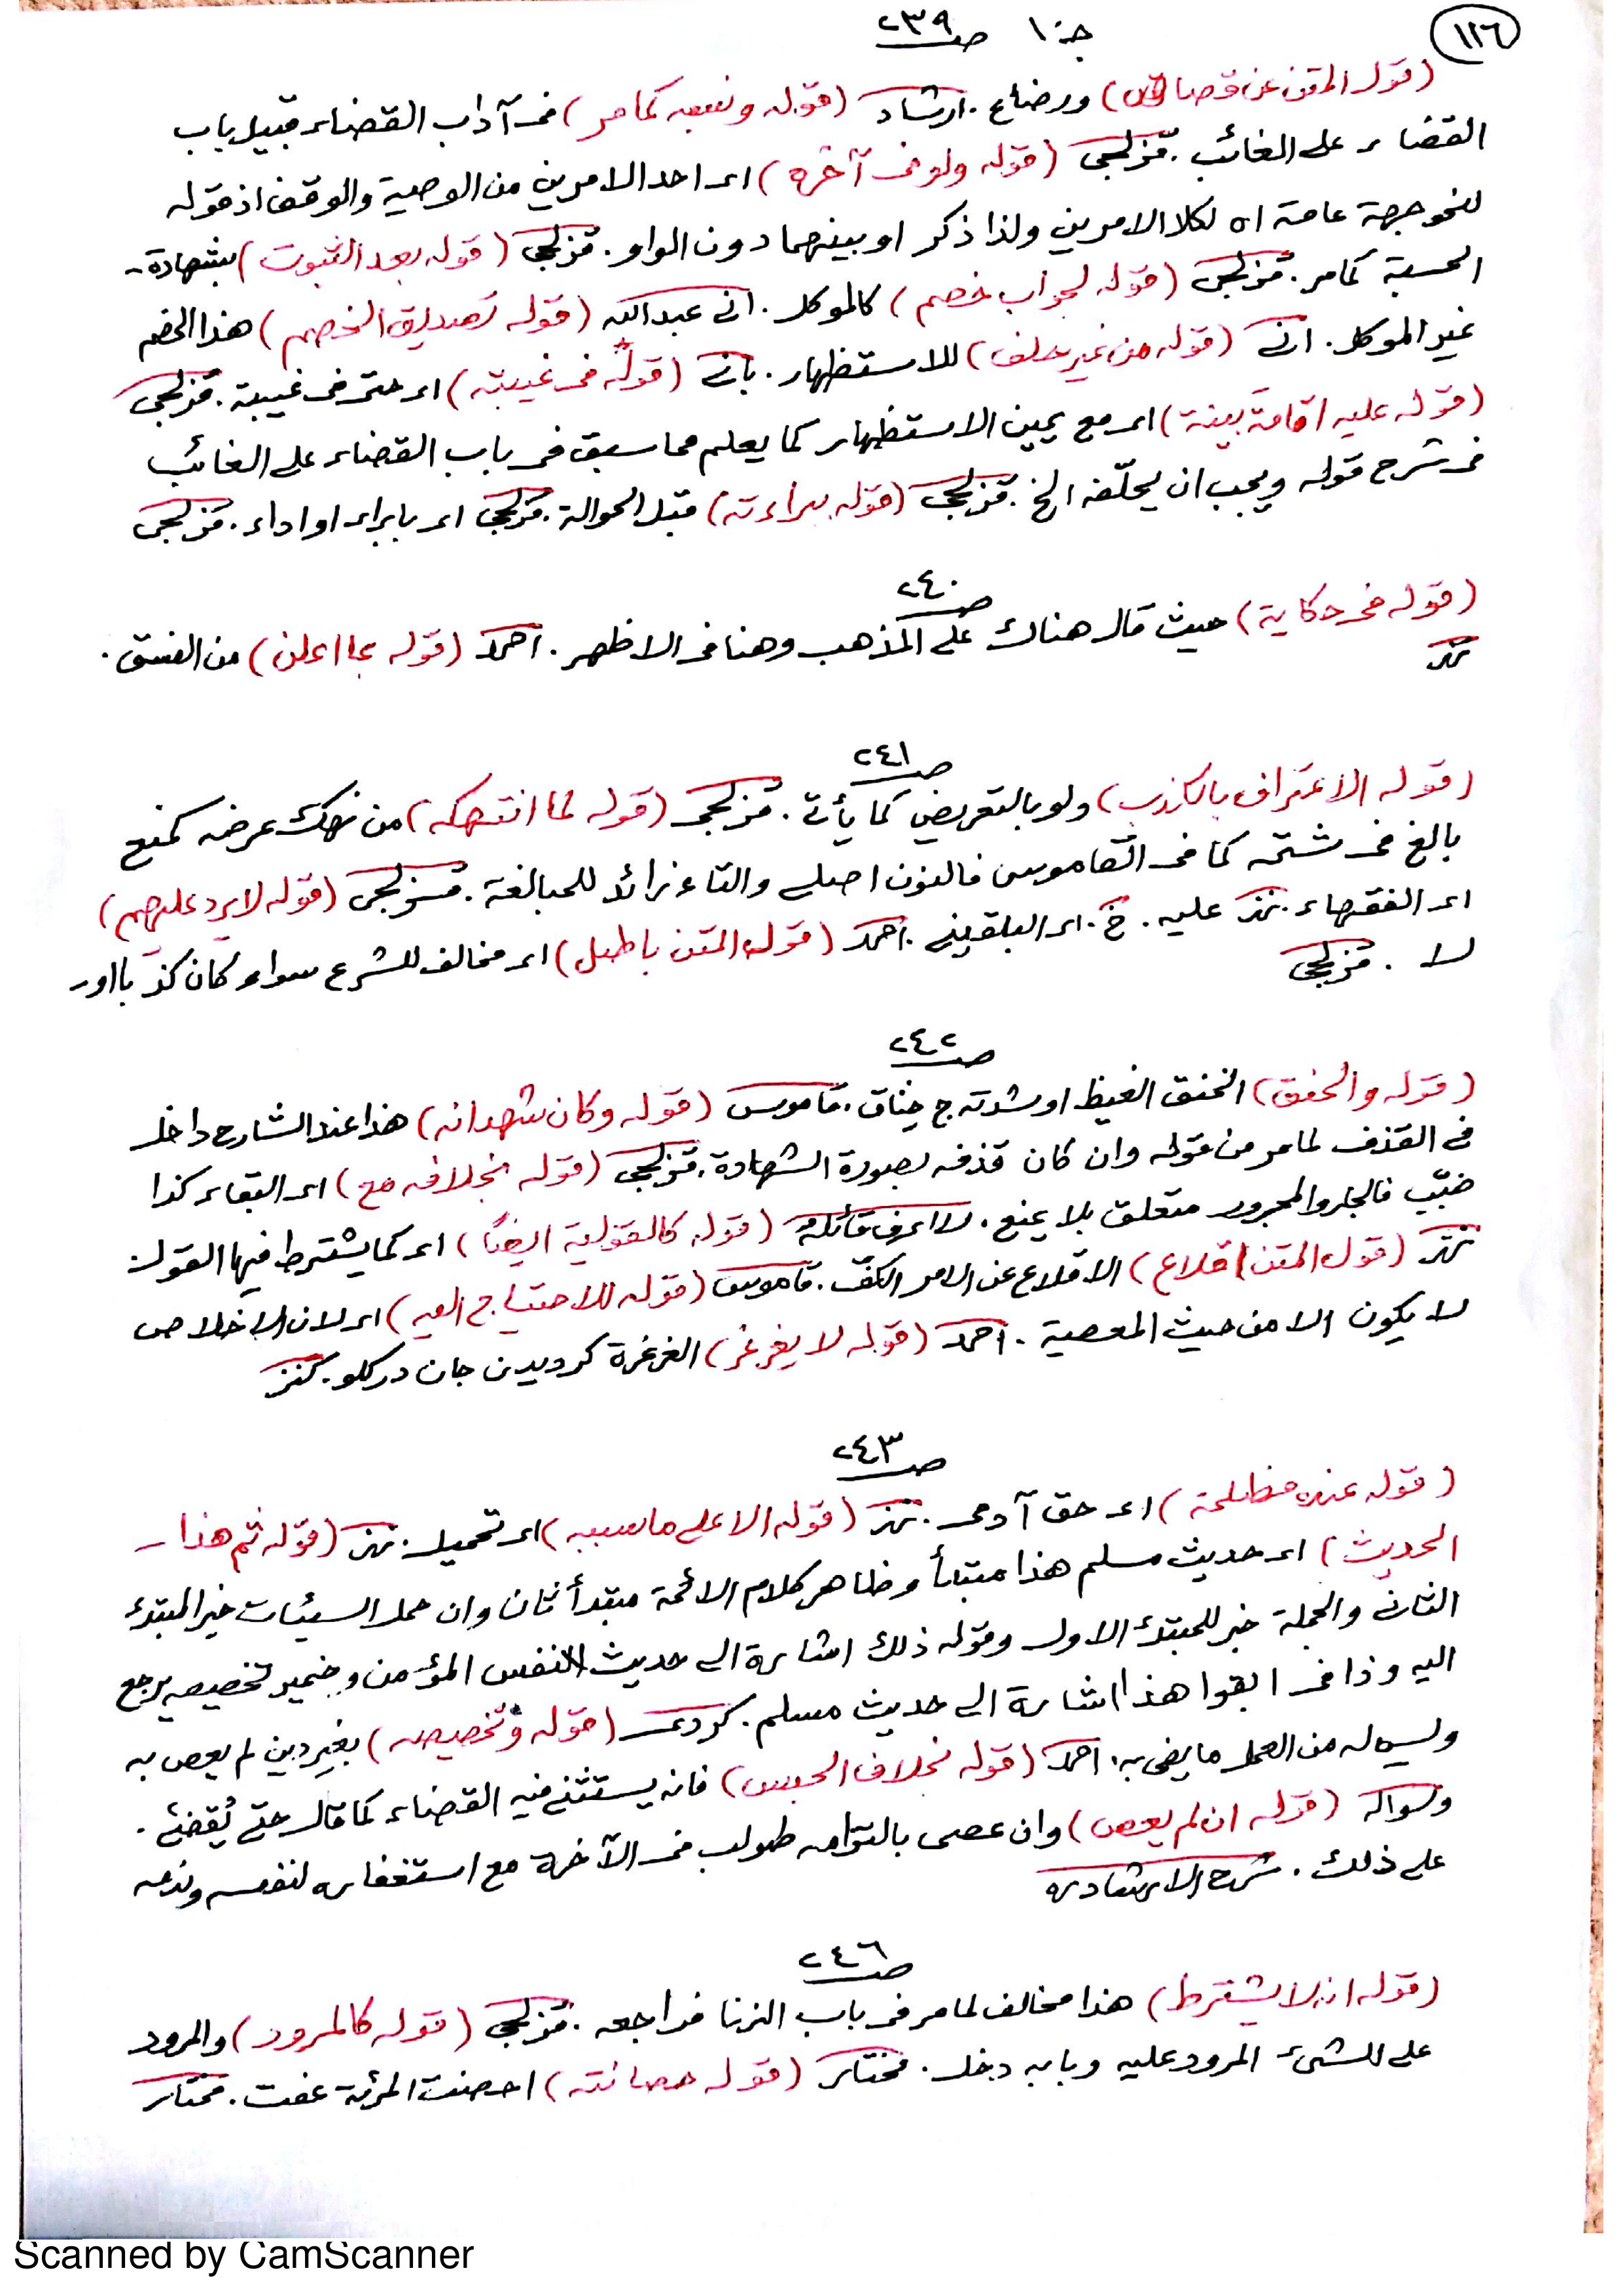 ١٢٦
جـ ١٠ صـ ٢٣٩
(قوله المتن عن قصاص) ورضاع . ارشاد (قوله ونصبه كما مر) فى آداب القضاء قبيل باب
القضاء على الغائب . قزلجى (قوله ولو فى آخره) اى احد الامرين من الوصية والوقف اذ قوله
لنحو جهة عامة اه لكلا الامرين ولذا ذكر او بينهما دون الواو . قزلجى (قوله بعد الثبوت) بشهادة
الحسبة كما مر . قزلجى (قوله لجواب خصم) كالموكل . انى عبدالله (قوله تصديق الخصم) هذا الخصم
غير الموكل . انى (قوله من غير حلف) للاستظهار . بانى (قوله فى غيبته) اى حتى فى غيبة . قزلجى
(قوله عليه اقامة بينة) اى مع يمين الاستظهار كما يعلم مما سبق فى باب القضاء على الغائب
فى شرح قوله ويجب ان يحلّفه الخ . قزلجى (قوله ببراءته) قبل الحوالة . قزلجى اى بابراء او اداء . قزلجى
صـ ٢٤٠
(قوله فى حكاية) حيث قال هناك على المذهب وهنا فى الاظهر . احمد (قوله بما اعلن) من الفسق .
صـ ٢٤١
(قوله الاعتراف بالكذب) ولو بالتعريض كما يأتى . قزلجى (قوله لما انتهكه) من نهك عرضه كمنع
بالغ فى شتمه كما فى القاموس فالنون اصلى والتاء زائد للمبالغة . قزلجى (قوله لا يرد عليهم)
اى الفقهاء . عليه . خ . اى البلقينى . احمد (قوله المتن باطل) اى مخالف للشرع سواء كان كذبا او
لا . قزلجى
صـ ٢٤٢
(قوله والحنق) الحنق الغيظ او شدته ج حناق . قاموس (قوله وكان شهد انه) هذا عند الشارح داخل
فى القذف لما مر من قوله وان كان قذفه بصورة الشهادة . قزلجى (قوله بخلافه مع) اى البقاء كذا
ضبّب فالجار والمجرور متعلق بلا يمنع . لا اعرف قائله (قوله كالقولية ايضًا) اى كما يشترط فيها القول
(قوله المتن اقلاع) الاقلاع عن الامر الكفّ . قاموس (قوله للاحتياج اليه) اى لان الاخلاص
لا يكون الا من حيث المعصية . احمد (قوله لا يغرغر) الغرغرة كرديدن جان در كلو . كنز
صـ ٢٤٣
(قوله عنده مظلمة) اى حق آدمى . (قوله الا على ما سببه) اى تحميل . (قوله ثم هذا
الحديث) اى حديث مسلم هذا مبتدأ وظاهر كلام الائمة مبتدأ ثان وان حمل السيئات خبر المبتدء
الثانى والجملة خبر للمبتدء الاول وقوله ذلك اشارة الى حديث النفس المؤمن وضمير تخصيصه يرجع
اليه وذا فى ابقوا هذا اشارة الى حديث مسلم . كردى (قوله وتخصيصه) بغير دين لم يعص به
وليس له من العمل ما يفى به . احمد (قوله بخلاف الحبس) فانه يستثنى فيه القضاء كما قال حتى يُقضى .
(قوله ان لم يعص) وان عصى بالتزامه طولب فى الآخرة مع استغفاره لنفسه وندمه
على ذلك . شرح الارشاد
صـ ٢٤٦
(قوله انه لا يشترط) هذا مخالف لما مر فى باب الزنا فراجعه . قزلجى (قوله كالمرور) والمرور
على الشىء المرور عليه وبابه دخل . مختار (قوله حصانته) احصنت المرئة عفت . مختار
Scanned by CamScanner